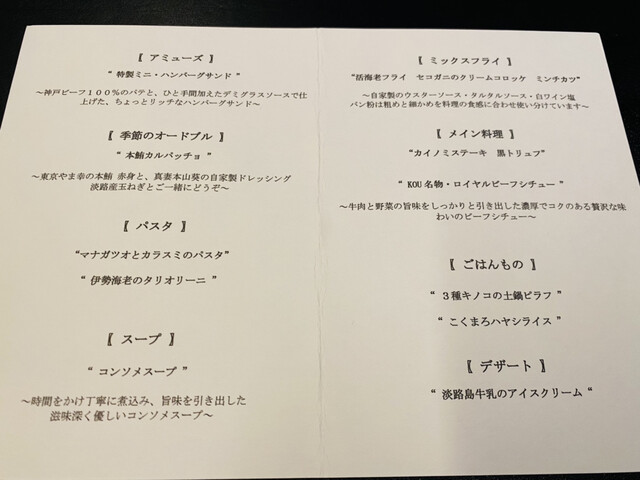 〖 アミューズ 〗
“ 特製ミニ・ハンバーグサンド ”
～神戸ビーフ１００％のパテと、ひと手間加えたデミグラスソースで仕
上げた、ちょっとリッチなハンバーグサンド～
〖 季節のオードブル 〗
“ 本鮪カルパッチョ ”
～東京やま幸の本鮪 赤身と、真妻本山葵の自家製ドレッシング
淡路産玉ねぎとご一緒にどうぞ～
〖 パスタ 〗
“マナガツオとカラスミのパスタ”
“ 伊勢海老のタリオリーニ ”
〖 スープ 〗
“ コンソメスープ ”
～時間をかけ丁寧に煮込み、旨味を引き出した
滋味深く優しいコンソメスープ～
〖 ミックスフライ 〗
“活海老フライ　セコガニのクリームコロッケ　ミンチカツ”
～自家製のウスターソース・タルタルソース・白ワイン塩
パン粉は粗めと細かめを料理の食感に合わせ使い分けています～
〖 メイン料理 〗
“カイノミステーキ　黒トリュフ”
“ KOU名物・ロイヤルビーフシチュー ”
～牛肉と野菜の旨味をしっかりと引き出した濃厚でコクのある贅沢な味
わいのビーフシチュー～
〖 ごはんもの 〗
“ ３種キノコの土鍋ピラフ ”
“ こくまろハヤシライス ”
〖 デザート 〗
“ 淡路島牛乳のアイスクリーム “